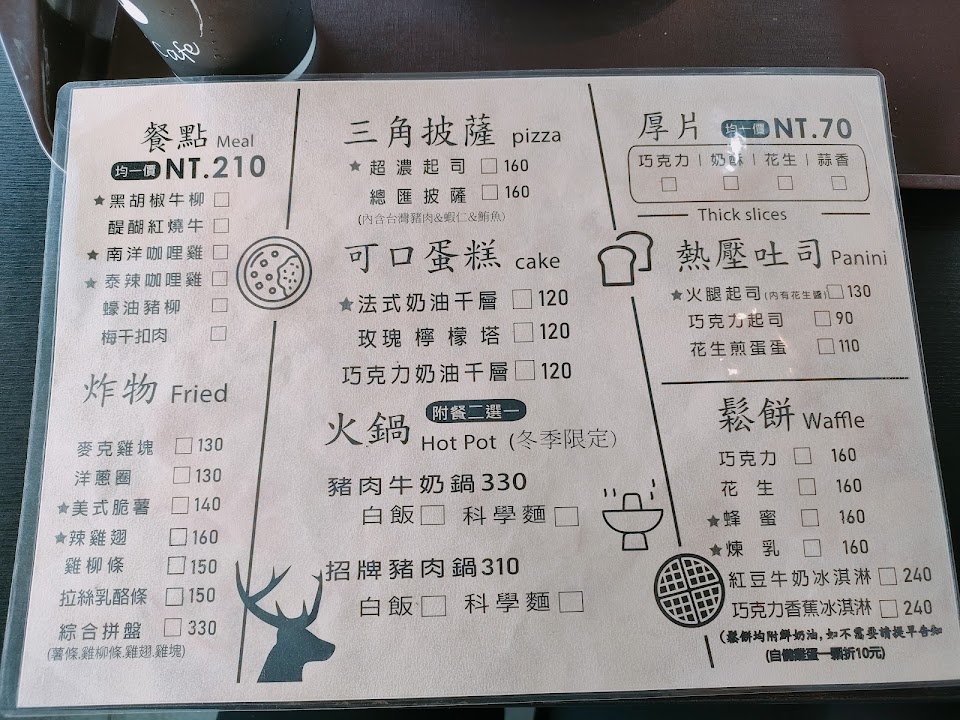 Cafe
餐點 Meal
均一價 NT.210
★黑胡椒牛柳 □
醍醐紅燒牛 □
★南洋咖哩雞 □
★泰辣咖哩雞 □
蠔油豬柳 □
梅干扣肉 □
炸物 Fried
麥克雞塊 □130
洋蔥圈 □130
★美式脆薯 □140
★辣雞翅 □160
雞柳條 □150
拉絲乳酪條 □150
綜合拼盤 □330
(薯條.雞柳條.雞翅.雞塊)
三角披薩 pizza
★超濃起司 □160
總匯披薩 □160
(內含台灣豬肉&蝦仁&鮪魚)
可口蛋糕 cake
★法式奶油千層 □120
玫瑰檸檬塔 □120
巧克力奶油千層 □120
附餐二選一
火鍋 Hot Pot (冬季限定)
豬肉牛奶鍋330
白飯□ 科學麵□
招牌豬肉鍋310
白飯□ 科學麵□
厚片 均一價 NT.70
巧克力|奶酥|花生|蒜香
□ □ □ □
Thick slices
熱壓吐司 Panini
★火腿起司(內有花生醬)□130
巧克力起司 □90
花生煎蛋蛋 □110
鬆餅 Waffle
巧克力 □ 160
花生 □ 160
★蜂蜜 □ 160
★煉乳 □ 160
紅豆牛奶冰淇淋 □240
巧克力香蕉冰淇淋 □240
(鬆餅均附鮮奶油,如不需要請提早告知
(自備雞蛋一顆折10元)